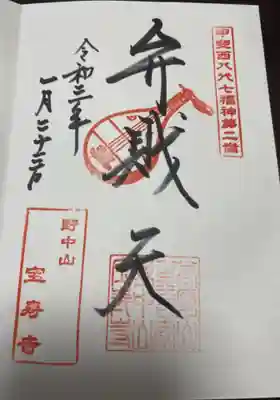 甲斐西八代七福神第二番
弁財天
令和三年
一月二十三日
野中山
宝寿寺